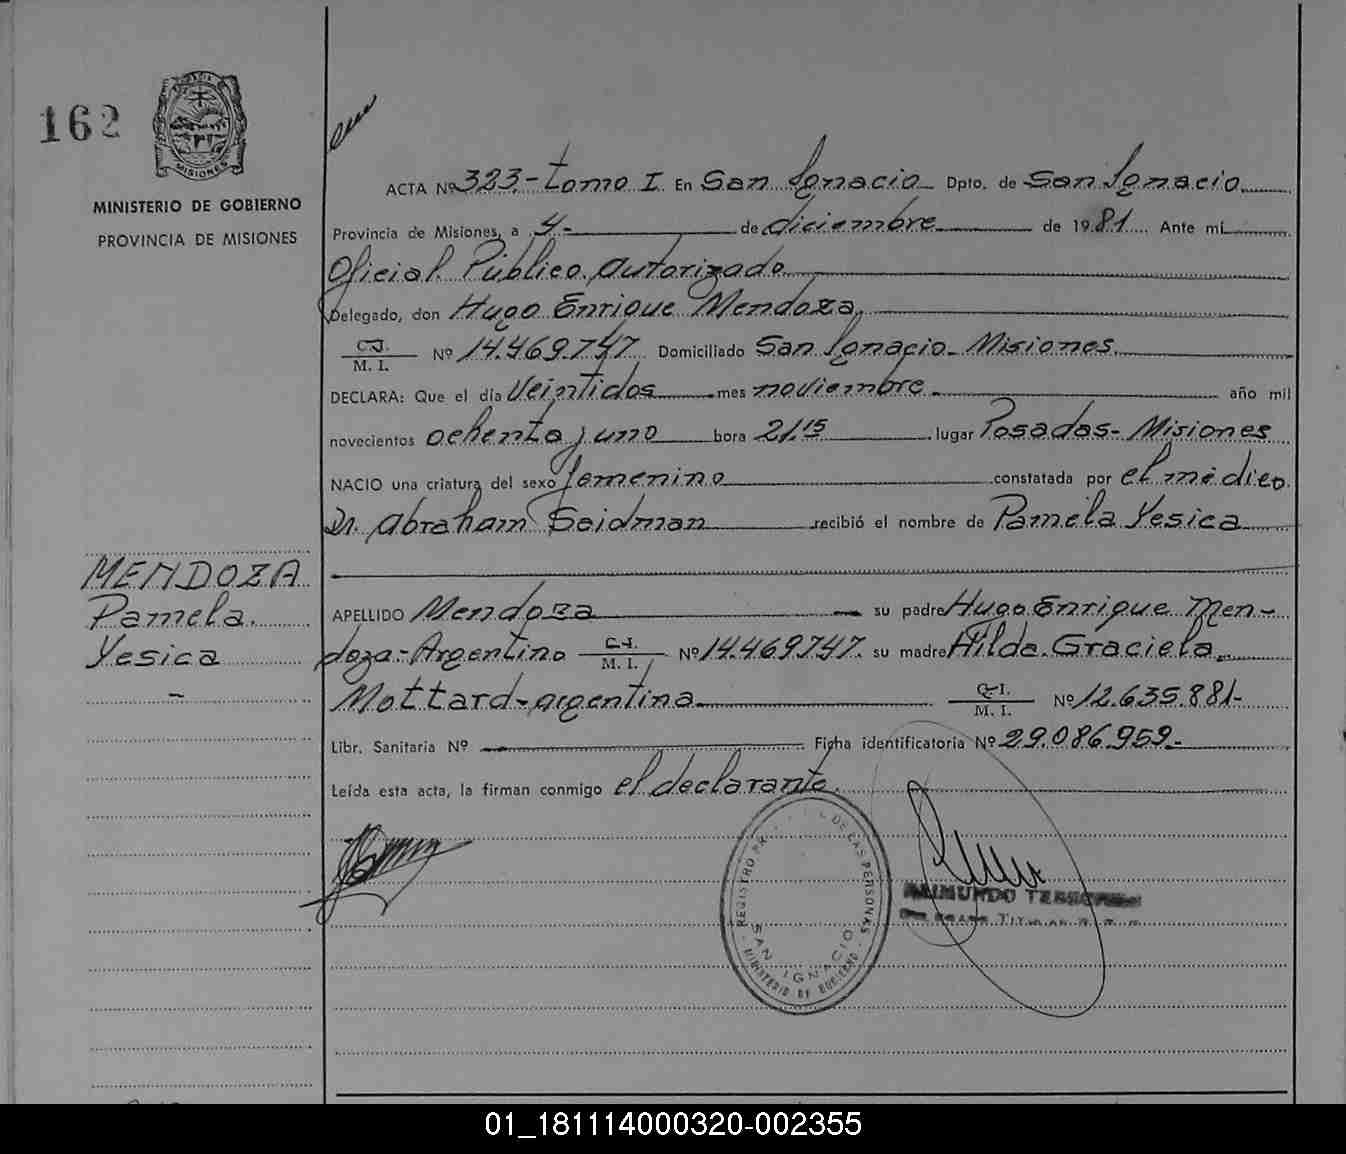 162
MISIONES
MINISTERIO DE GOBIERNO
PROVINCIA DE MISIONES
ACTA Nº 323.- Tomo I. En San Ignacio Dpto. de San Ignacio
Provincia de Misiones, a 4.- de diciembre de 1981. Ante mí
Oficial Público autorizado
Delegado, don Hugo Enrique Mendoza.
C.I.
M. I. Nº 14.469.747 Domiciliado San Ignacio - Misiones
DECLARA: Que el día Veintidos mes noviembre año mil
novecientos ochenta y uno hora 21.15 lugar Posadas - Misiones
NACIO una criatura del sexo femenino constatada por el médico
Dr. Abraham Seidman recibió el nombre de Pamela Yesica
MENDOZA
Pamela
Yesica
APELLIDO Mendoza su padre Hugo Enrique Men-
doza - Argentino C.I.
M. I. Nº 14.469.747. su madre Hilda Graciela
Mottard - argentina C.I.
M. I. Nº 12.635.881-
Libr. Sanitaria Nº Ficha identificatoria Nº 29.086.959.-
Leída esta acta, la firman conmigo el declarante.
REGISTRO DE LAS PERSONAS
SAN IGNACIO
MINISTERIO DE GOBIERNO
RAIMUNDO
01_181114000320-002355